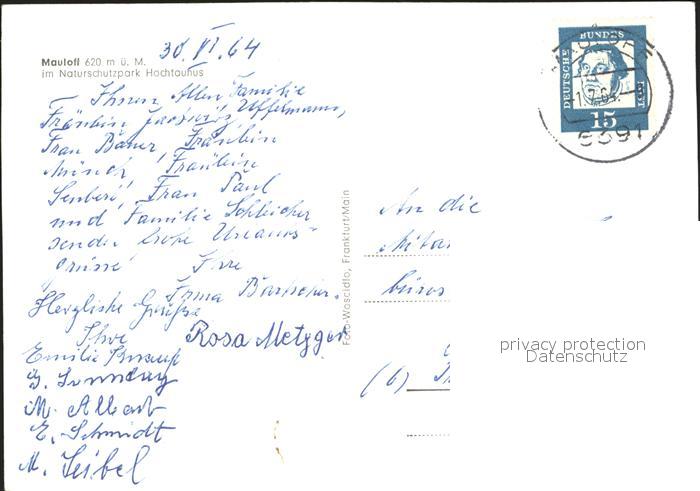 Mauloff 620 m ü. M.
im Naturschutzpark Hochtaunus
30. VI. 64
Ihnen Allen Familie
Fräulein Uffelmann,
Frau Bauer, Fräulein
Münch, Fräulein
Frau Paul
und Familie Schleicher
senden frohe Urlaubs-
grüsse Ihre
Firma
Herzliche Grüße
Ihre
Rosa Metzger
Emilie
M. Albart
E. Schmidt
M. Seibel
Foto-Woscidlo, Frankfurt/Main
DEUTSCHE
BUNDES
POST
15
-1.7.64
6391
An die
Mitar
büros
(6)
privacy protection
Datenschutz